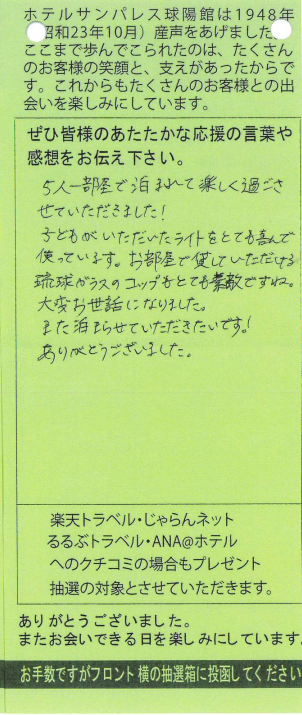 ホテルサンパレス球陽館は1948年
昭和23年10月）産声をあげました
ここまで歩んでこられたのは、たくさん
のお客様の笑顔と、支えがあったからで
す。これからもたくさんのお客様との出
会いを楽しみにしています。
ぜひ皆様のあたたかな応援の言葉や
感想をお伝え下さい。
5人一部屋で泊まれて楽しく過ごさ
せていただきました！
子どもがいただいたライトをとても喜んで
使っています。お部屋で貸していただける
琉球ガラスのコップもとても素敵ですね。
大変お世話になりました。
また泊まらせていただきたいです！
ありがとうございました。
楽天トラベル・じゃらんネット
るるぶトラベル・ANA@ホテル
へのクチコミの場合もプレゼント
抽選の対象とさせていただきます。
ありがとうございました。
またお会いできる日を楽しみにしています
お手数ですがフロント横の抽選箱に投函してください